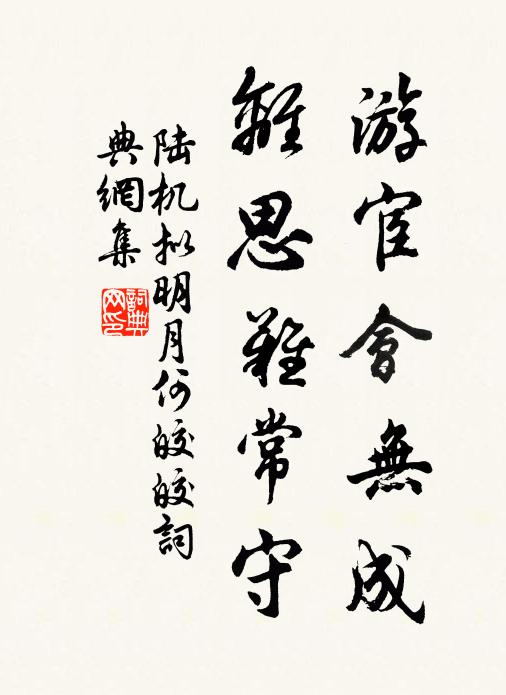 游宦會無成
離思難常守
陆机拟明月何皎皎詞
典網集
詞典网印